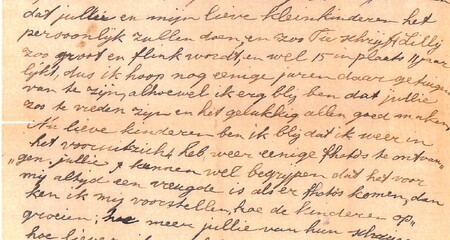 dat jullie en mijn lieve kleinkinderen het
persoonlijk zullen doen, en zoo Tu schrijft Lilly
zoo groot en flink wordt, en wel 15 in plaats 11 jaar
lijkt, dus ik hoop nog eenige jaren daar getuige
van te zijn, alhoewel ik erg blij ben dat jullie
zoo te vreden zijn en het gelukkig allen goed maken
Nu lieve kinderen ben ik blij dat ik weer in
het vooruitzicht heb, weer eenige photo's te ontvan-
gen. jullie kunnen wel begrijpen dat het voor
mij altijd een vreugde is als er photos komen, dan
ken ik mij voorstellen, hoe de kinderen op"
groeien; hoe meer jullie van hun
hoe liever